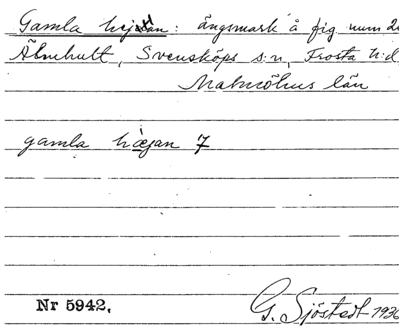 Gamla hejan: ängsmark å fig num 2
Älmhult, Svensköps s:n, Frosta h:d
Malmöhus län
gamla hæjan 7
Nr 5942.
G. Sjöstedt 1936